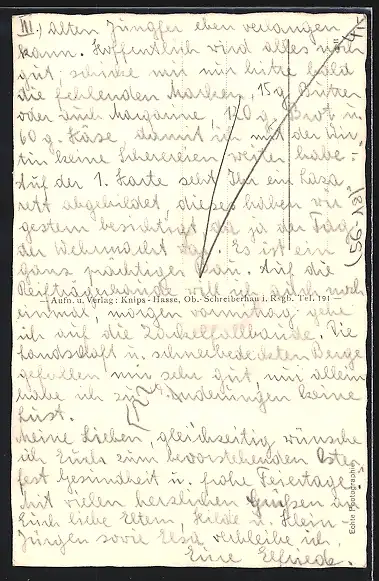 III.) alten Jungfer eben verlangen
kann. Hoffentlich wird alles noch
gut, schicke mir nur bitte bald
die fehlenden Marken, 15 g Butter
oder auch Margarine, 120 g Brot u.
60 g. Käse, damit ich mit der Wir-
tin keine Scherereien weiter habe.
Auf der 1. Karte seht Ihr ein Laza-
rett abgebildet, dieses haben wir
gestern besichtigt da ja der Tag
der Wehrmacht war. Es ist ein
ganz prächtiger Bau. Auf die
will ich auch noch
— Aufn. u. Verlag: Knips-Hasse, Ob.-Schreiberhau i. Rsgb. Tel. 191 —
einmal, morgen vormittag gehe
ich auf die Zackelfallbaude. Die
Landschaft u. schneebedeckten Berge
gefallen mir sehr gut, nur allein
habe ich zu Wanderungen keine
Lust.
Meine Lieben, gleichzeitig wünsche
ich Euch zum bevorstehenden Oster-
fest Gesundheit u. frohe Feiertage.
Mit vielen herzlichen Grüßen an
Euch liebe Eltern, Hilde u. Klein-
Jürgen sowie Elsa verbleibe ich
Eure Elfriede.
Echte Photographie